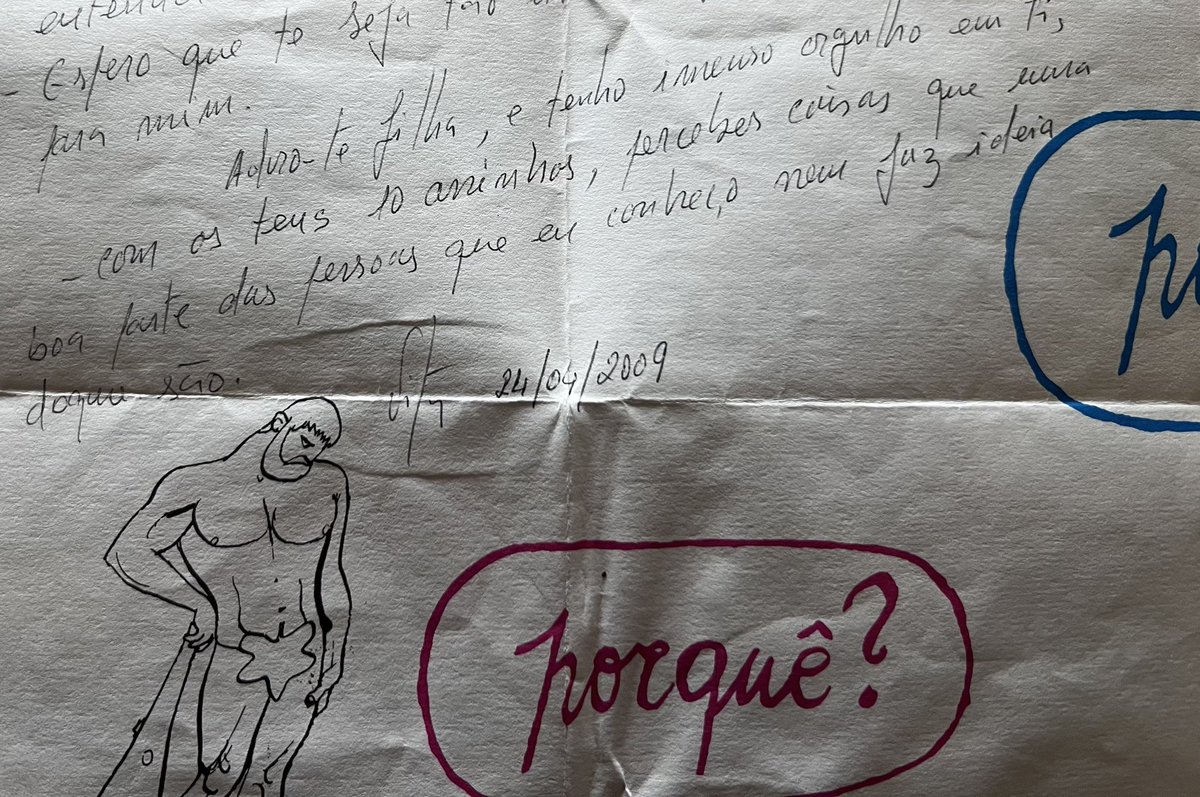 - Espero que te seja tão
para mim.
Adoro-te filha, e tenho imenso orgulho em ti,
- com os teus 10 aninhos, percebes coisas que uma
boa parte das pessoas que eu conheço nem faz ideia
doque são.
24/04/2009
porquê?